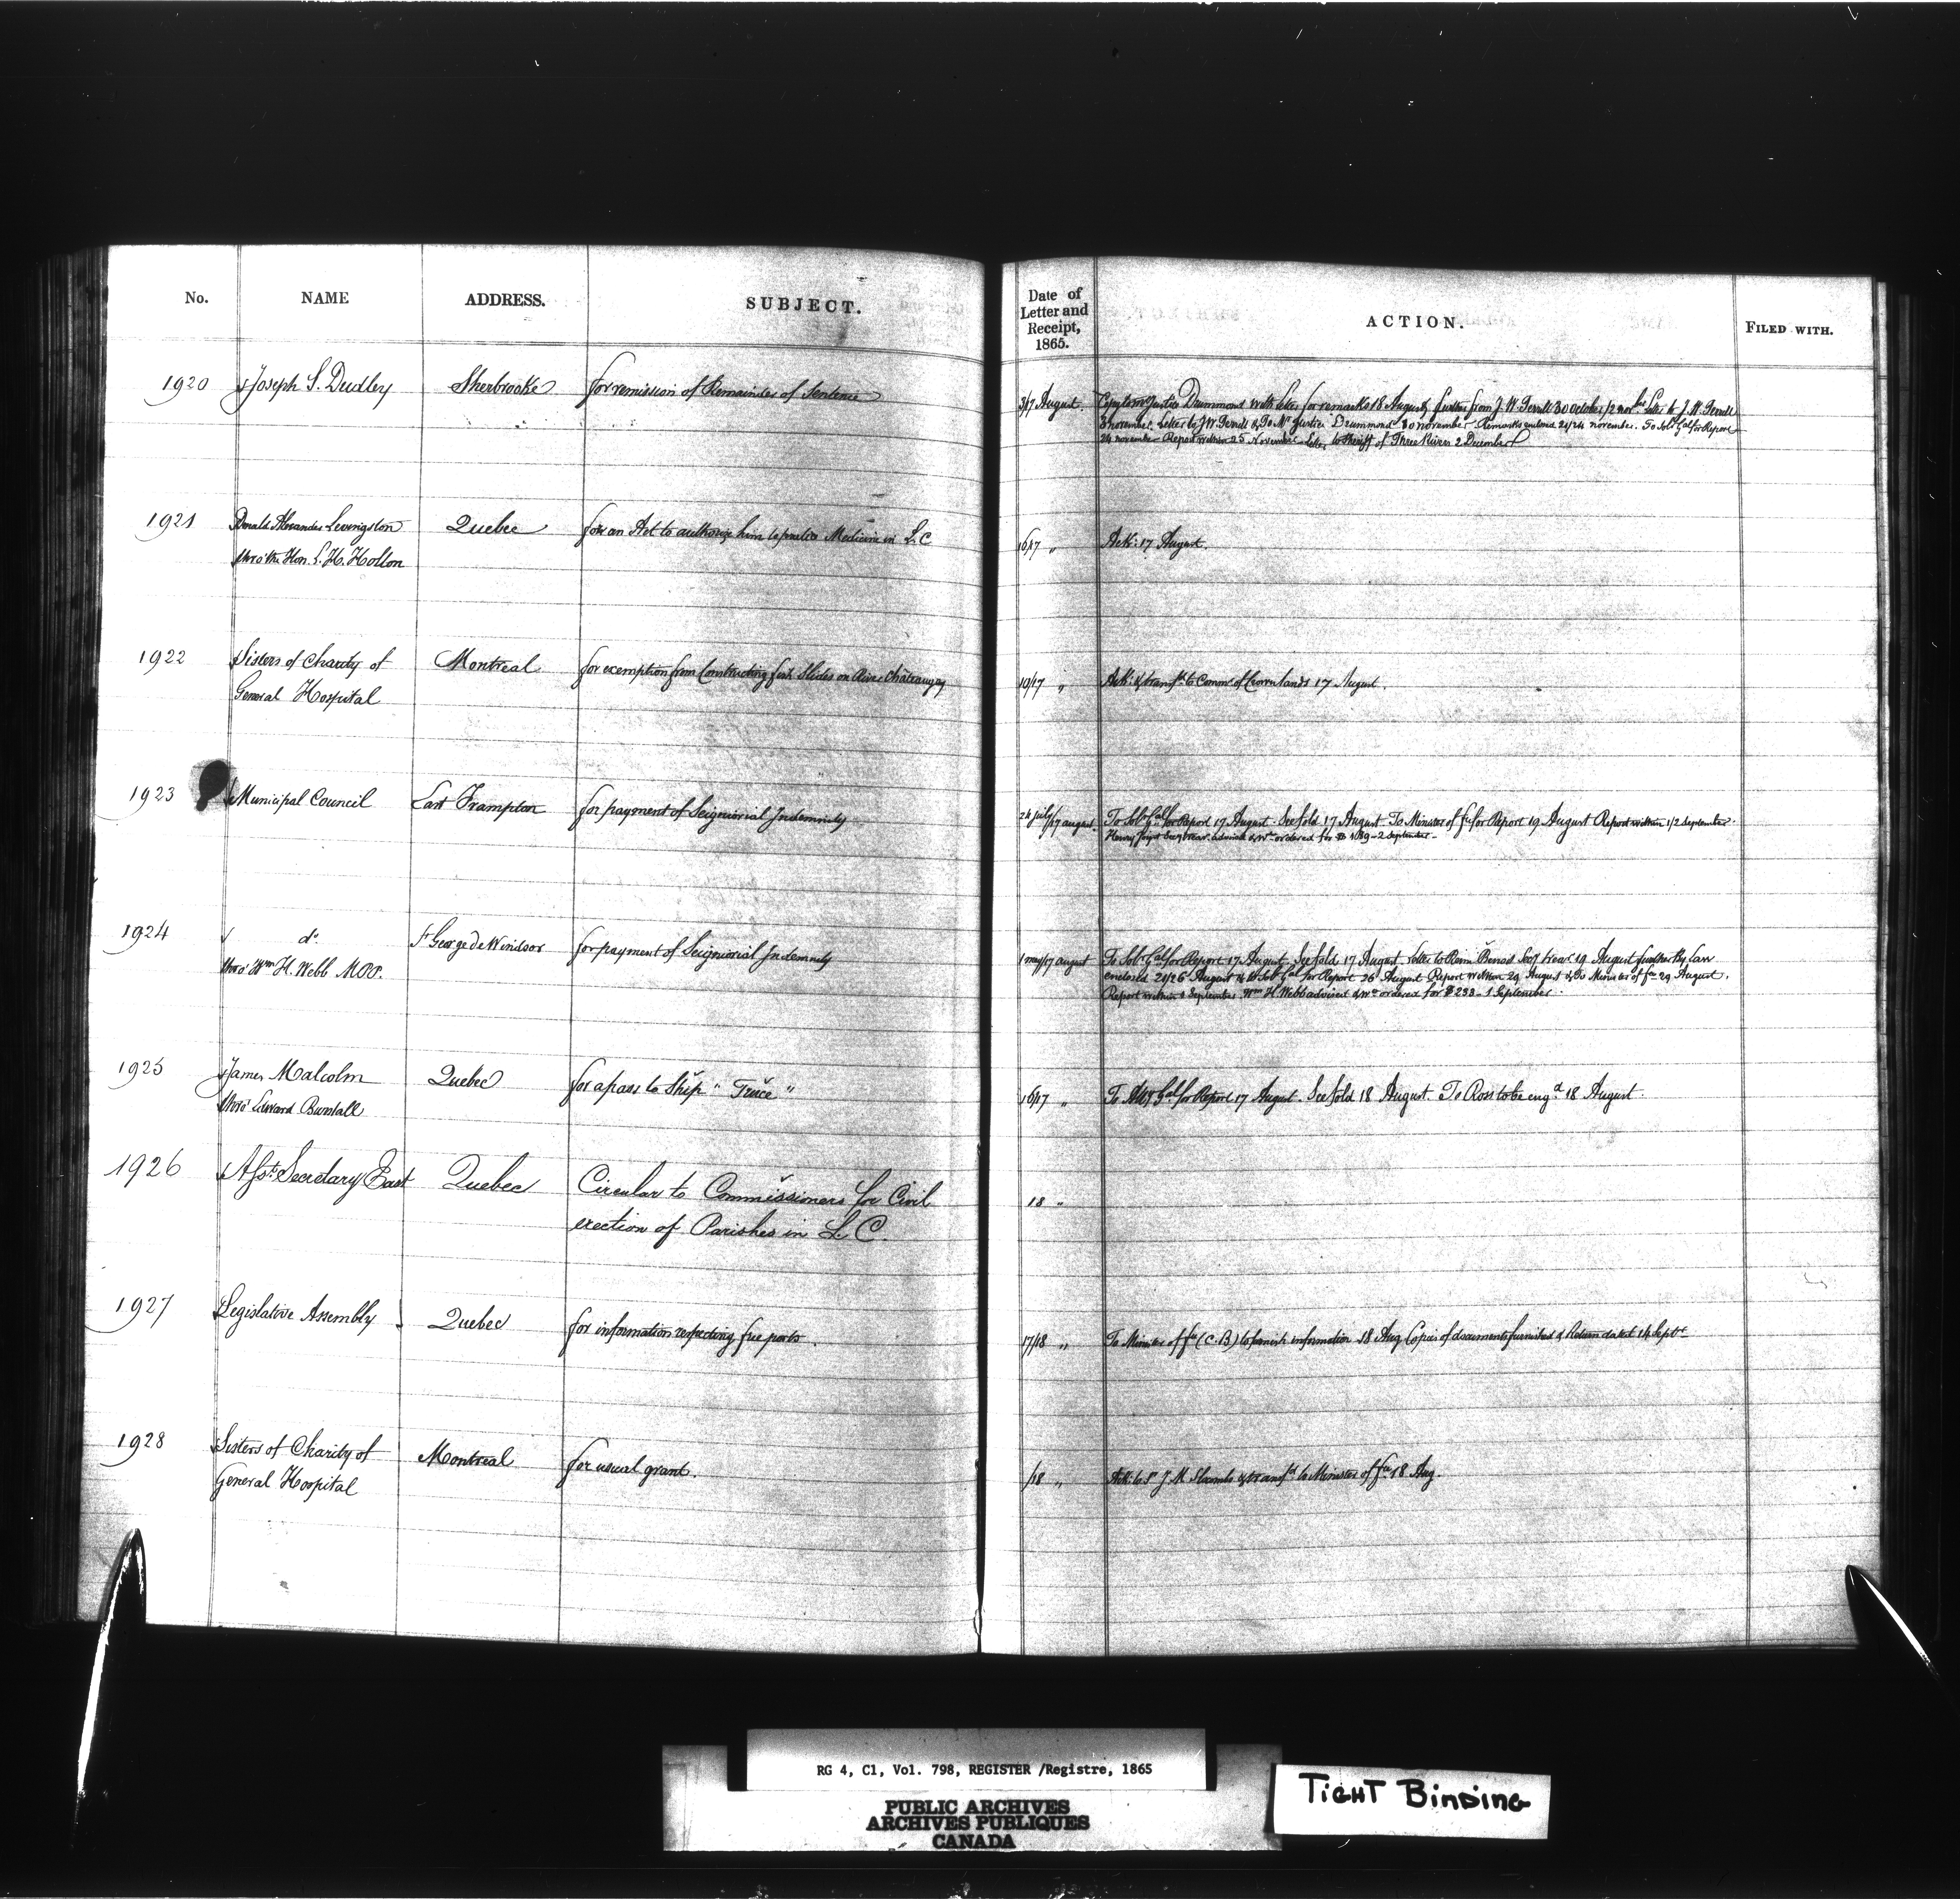 No. NAME ADDRESS. SUBJECT.
Date of Letter and Receipt, 1865. ACTION. FILED WITH.
1920 Joseph S. Dudley Sherbrooke for remission of Remainder of Sentence
3/17 August. Justice Drummond with letter for remarks 18 August, further from J. W. Terrill 30 October/2 nov letter to J. W. Terrill
november. Letter to J W Terrill & To Mr Justice Drummond 10 november Remarks enclosed 21/24 november. To Solr Gal for Report
24 november Report within 25 November Letter to Sheriff of Three Rivers 2 December
1921 Donald Alexander Levingston Quebec for an Act to authorize him to practice Medicine in L. C
thro' the Hon. L. H. Holton
16/17 " Ack: 17 August.
1922 Sisters of Charity of Montreal for exemption from Constructing fish Slides on River Chateauguay
General Hospital
10/17 " Ack: & transfd to Commr of Crown lands 17 August.
1923 Municipal Council East Frampton for payment of Seigniorial Indemnity
24 july/17 august. To Solr Gal for Report 17 August. See fold 17 August To Minister of fce for Report 19 August Report within 1/2 September.
Henry advised & Wt ordered for $ 2 September -
1924 do. St George de Windsor for payment of Seigniorial Indemnity
thro' Wm H. Webb MPP.
1 may/17 august To Solr Gal for Report 17 August. See fold 17 August. letter to Secy trear 19 August further By Law
enclosed 21/26 August & to Solr Gal for Report 26 August Report within 29 August & To Minister of fce 29 August.
Report within 1 September. Wm H. Webb advised & Wt ordered for $ 233 - 1 September.
1925 James Malcolm Quebec for a pass to Ship "Truce"
thro' Edward Burstall
16/17 " To Atty Gal for Report 17 August. See fold 18 August. To Ross to be engd 18 August.
1926 Asst. Secretary East Quebec Circular to Commissioners for Civil
erection of Parishes in L. C.
18 "
1927 Legislative Assembly Quebec for information respecting free ports.
17/18 " To Minister of fce (C. B) to furnish information 18 Aug Copies of documents furnished & Return dated 14 Septr
1928 Sisters of Charity of Montreal for usual grant.
General Hospital
/18 " Ack: to Sr J. M. Slocombe & transfd to Minister of fce 18 Aug.
RG 4, C1, Vol. 798, REGISTER /Registre, 1865
PUBLIC ARCHIVES
ARCHIVES PUBLIQUES
CANADA
TIGHT BINDING